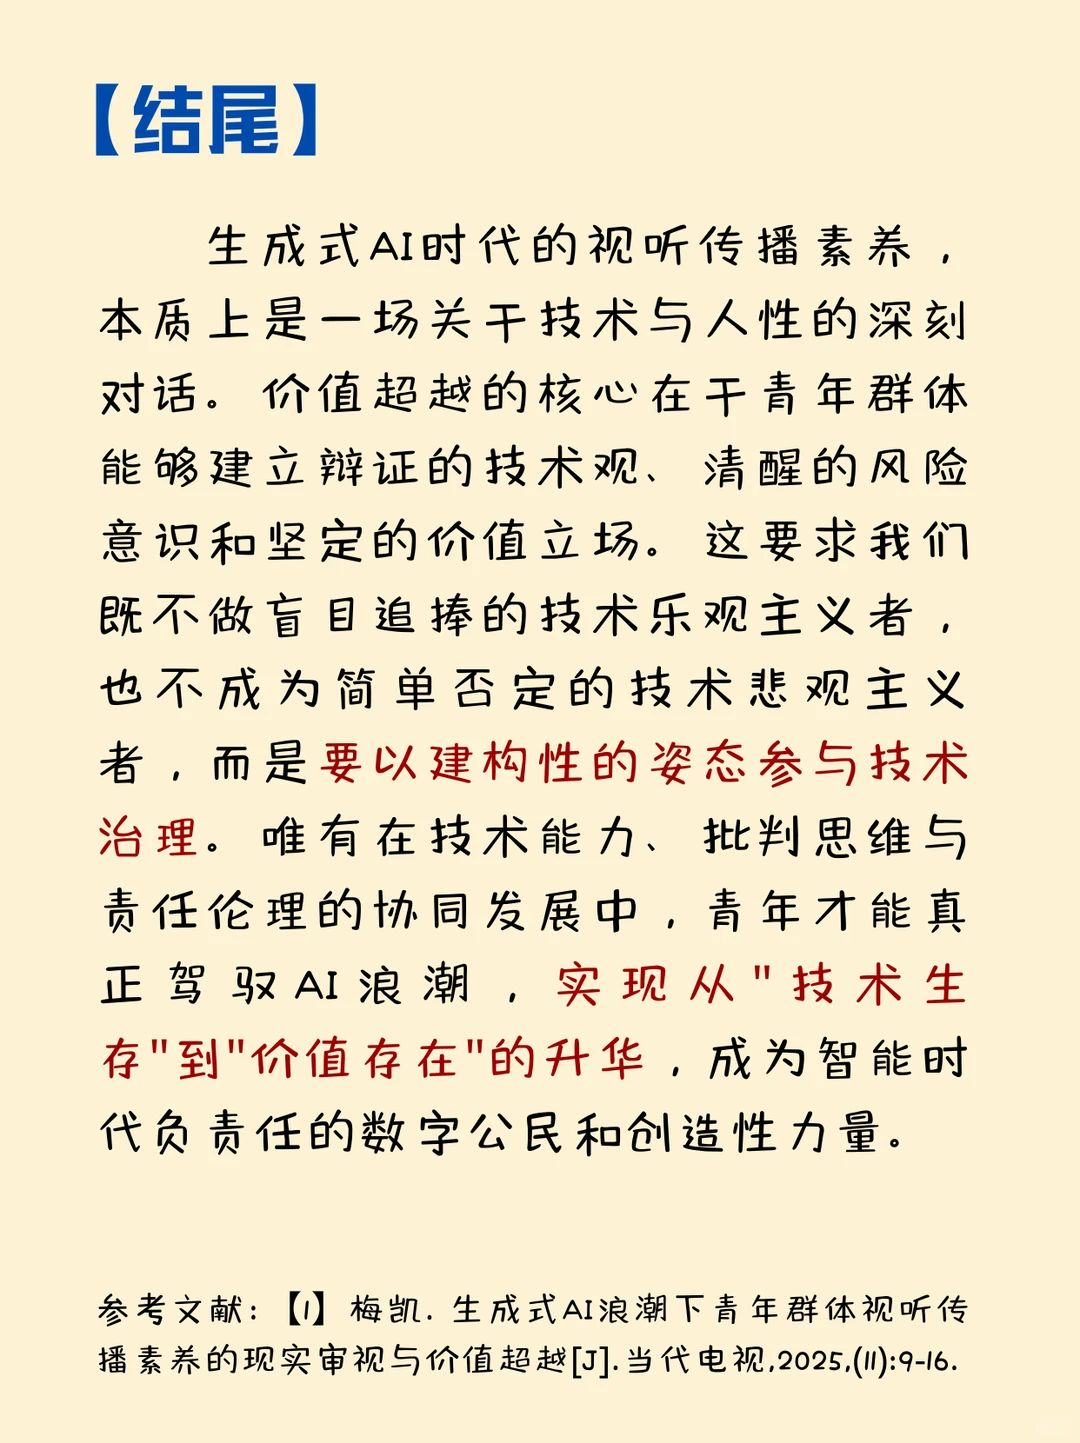 【结尾】
生成式AI时代的视听传播素养，
本质上是一场关于技术与人性的深刻
对话。价值超越的核心在于青年群体
能够建立辩证的技术观、清醒的风险
意识和坚定的价值立场。这要求我们
既不做盲目追捧的技术乐观主义者，
也不成为简单否定的技术悲观主义
者，而是要以建构性的姿态参与技术
治理。唯有在技术能力、批判思维与
责任伦理的协同发展中，青年才能真
正驾驭AI浪潮，实现从"技术生
存"到"价值存在"的升华，成为智能时
代负责任的数字公民和创造性力量。
参考文献:【1】梅凯. 生成式AI浪潮下青年群体视听传
播素养的现实审视与价值超越[J].当代电视,2025,(11):9-16.